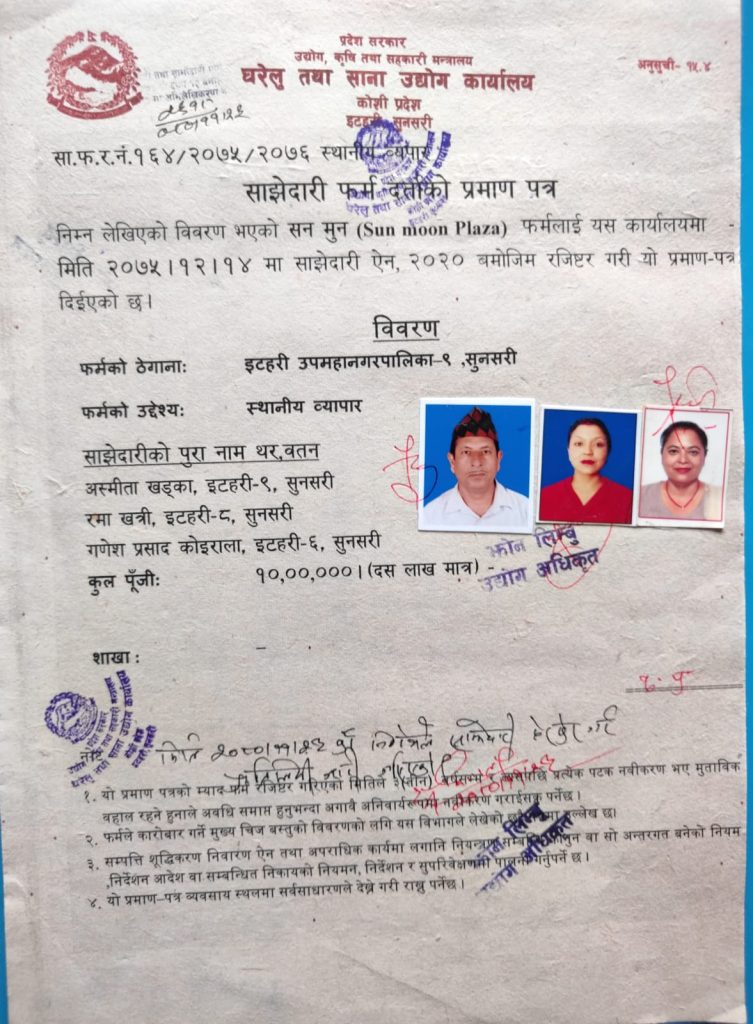 प्रदेश सरकार
उद्योग, कृषि तथा सहकारी मन्त्रालय
घरेलु तथा साना उद्योग कार्यालय
अनुसुची- १५.४
कोशी प्रदेश
इटहरी, सुनसरी
सा.फ.र.नं.१६४/२०७५/२०७६ स्थानीय व्यापार
साझेदारी फर्म दर्ताको प्रमाण पत्र
निम्न लेखिएको विवरण भएको सन मुन (Sun moon Plaza) फर्मलाई यस कार्यालयमा
मिति २०७५।१२।१४ मा साझेदारी ऐन, २०२० बमोजिम रजिष्टर गरी यो प्रमाण-पत्र
दिईएको छ।
विवरण
फर्मको ठेगानाः इटहरी उपमहानगरपालिका-९ ,सुनसरी
फर्मको उद्देश्यः स्थानीय व्यापार
साझेदारीको पुरा नाम थर,वतन
अस्मीता खड्का, इटहरी-९, सुनसरी
रमा खत्री, इटहरी-८, सुनसरी
गणेश प्रसाद कोइराला, इटहरी-६, सुनसरी
झोन लिम्बु
उद्योग अधिकृत
कुल पूँजीः १०,००,०००।(दस लाख मात्र) -
शाखा :
१. यो प्रमाण पत्रको म्याद फर्म रजिष्टर गरिएको मितिले ३(तीन) वर्षसम्म र प्रत्येक पटक नवीकरण भए मुताविक
बहाल रहने हुनाले अवधि समाप्त हुनुभन्दा अगावै अनिवार्यरूपमा नवीकरण गराईसक्नु पर्नेछ।
२. फर्मले कारोबार गर्ने मुख्य चिज बस्तुको विवरणको लगि यस विभागले लेखेको उल्लेख छ।
३. सम्पत्ति शूद्धिकरण निवारण ऐन तथा अपराधिक कार्यमा लगानि नियन्त्रण कानुन वा सो अन्तरगत बनेको नियम
,निर्देशन आदेश वा सम्बन्धित निकायको नियमन, निर्देशन र सुपरिवेक्षणको पालना गर्नुपर्ने छ।
झोन लिम्बु
उद्योग अधिकृत
४. यो प्रमाण-पत्र व्यवसाय स्थलमा सर्वसाधारणले देख्ने गरी राख्नु पर्नेछ।